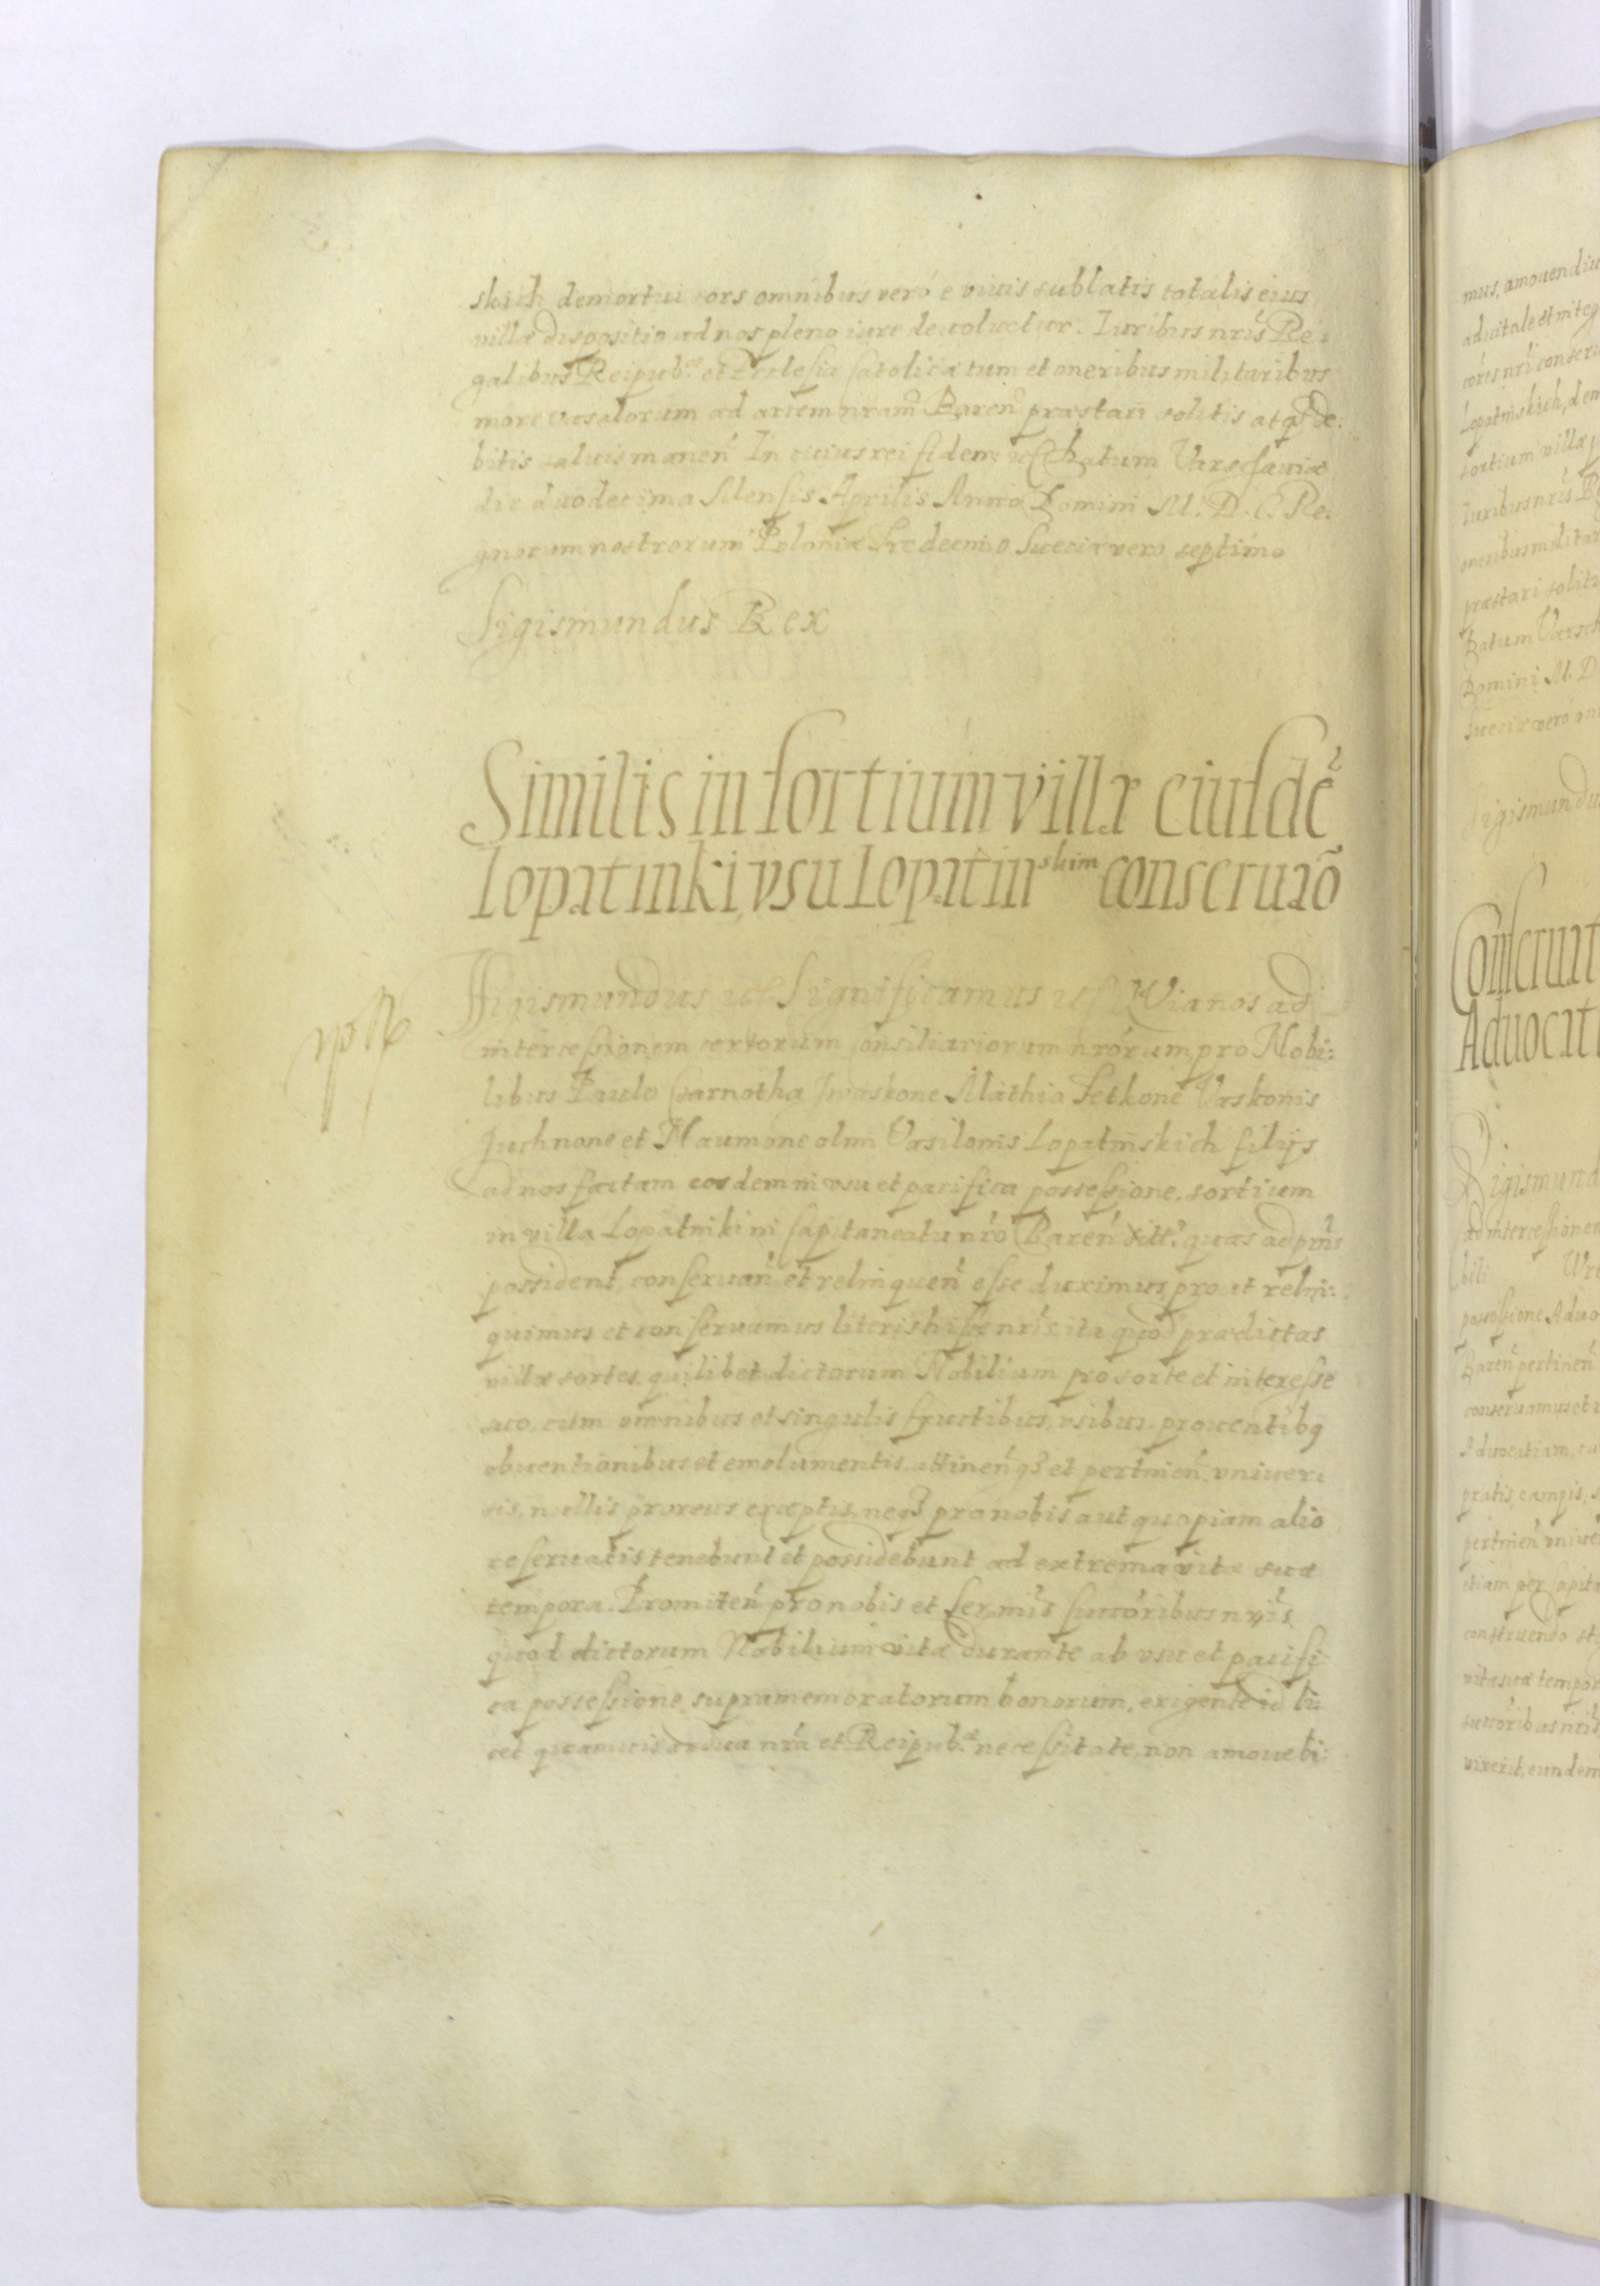 skich demortui sors omnibus vero e viuis sublatis totalis eius
villæ dispositio ad nos pleno iure deuoluetur. Iuribus nr̃is Re:
galibus Reipub:cæ et Ecclesiæ Catolicæ tum et oneribus militaribus
more vasalorum ad arcem nram̃ Baren̄ præstari solitis atq̃ de:
bitis saluis manen̄ In cuius rei fidem etc Datum Varschauiæ
die duodecima Mensis Aprilis Anno Domini M. D. C. Re:
gnorum nostrorum Poloniæ Tredecimo Sueciæ vero septimo
Sigismundus Rex
Similis in sortium villæ eiusdẽ
Lopatinki, vsu Lopatinskim conseruaõ
Sigismundus etc Significamus etc Quia nos ad
intercessionem certorum Consiliariorum nr̃orum, pro Nobi:
libus Paulo Czarnotha Iwaskone Mathia Fetkone Vaskonis
Juchnone et Naumone olim Vasilonis Lopatinskich filijs
ad nos factam eosdem in vsu et pacifica possessione sortium
in villa Lopatinki in Capitaneatu nr̃o Baren̄ sitt: quas ad pn̄s
possident, conseruan̄ et relinquen̄ esse duximus, pro ut relin:
quimus et conseruamus literis hisce nr̃is ita quod prædictas
villæ sortes quilibet dictorum Nobilium pro sorte et interesse
suo, cum omnibus et singulis fructibus, vsibus, prouentibq
obuentionibus et emolumentis attinen̄ q̃ et pertinen̄ vniuer:
sis, nullis prorsus exceptis, neq̃ pro nobis aut quopiam alio
reseruatis tenebunt et possidebunt ad extrema vitæ suæ
tempora. Promitten̄ pro nobis et Ser,mis succ̃oribus nr̃is
quod dictorum Nobilium vita durante ab vsu et pacifi
ca possessione supramemoratorum bonorum, exigente id li:
cet quamuis ardua nr̃a et Reipub:cæ necessitate, non amouebi:
mus, amouendiu
Lopatinskich, dem
sortium villæ
Iuribus nr̃is
oneribus militar
præstari solit
Datum Varsch
Domini M. D
Sigismundu
Conseruat
Aduocati
Sigismund
ad intercessionem
possessione Aduo
Baren̄ pertinen̄
conseruamus et
pratis, campis,
construendo
vitæ suæ tempor
succ̃oribus nr̃is
vixerit, eundem